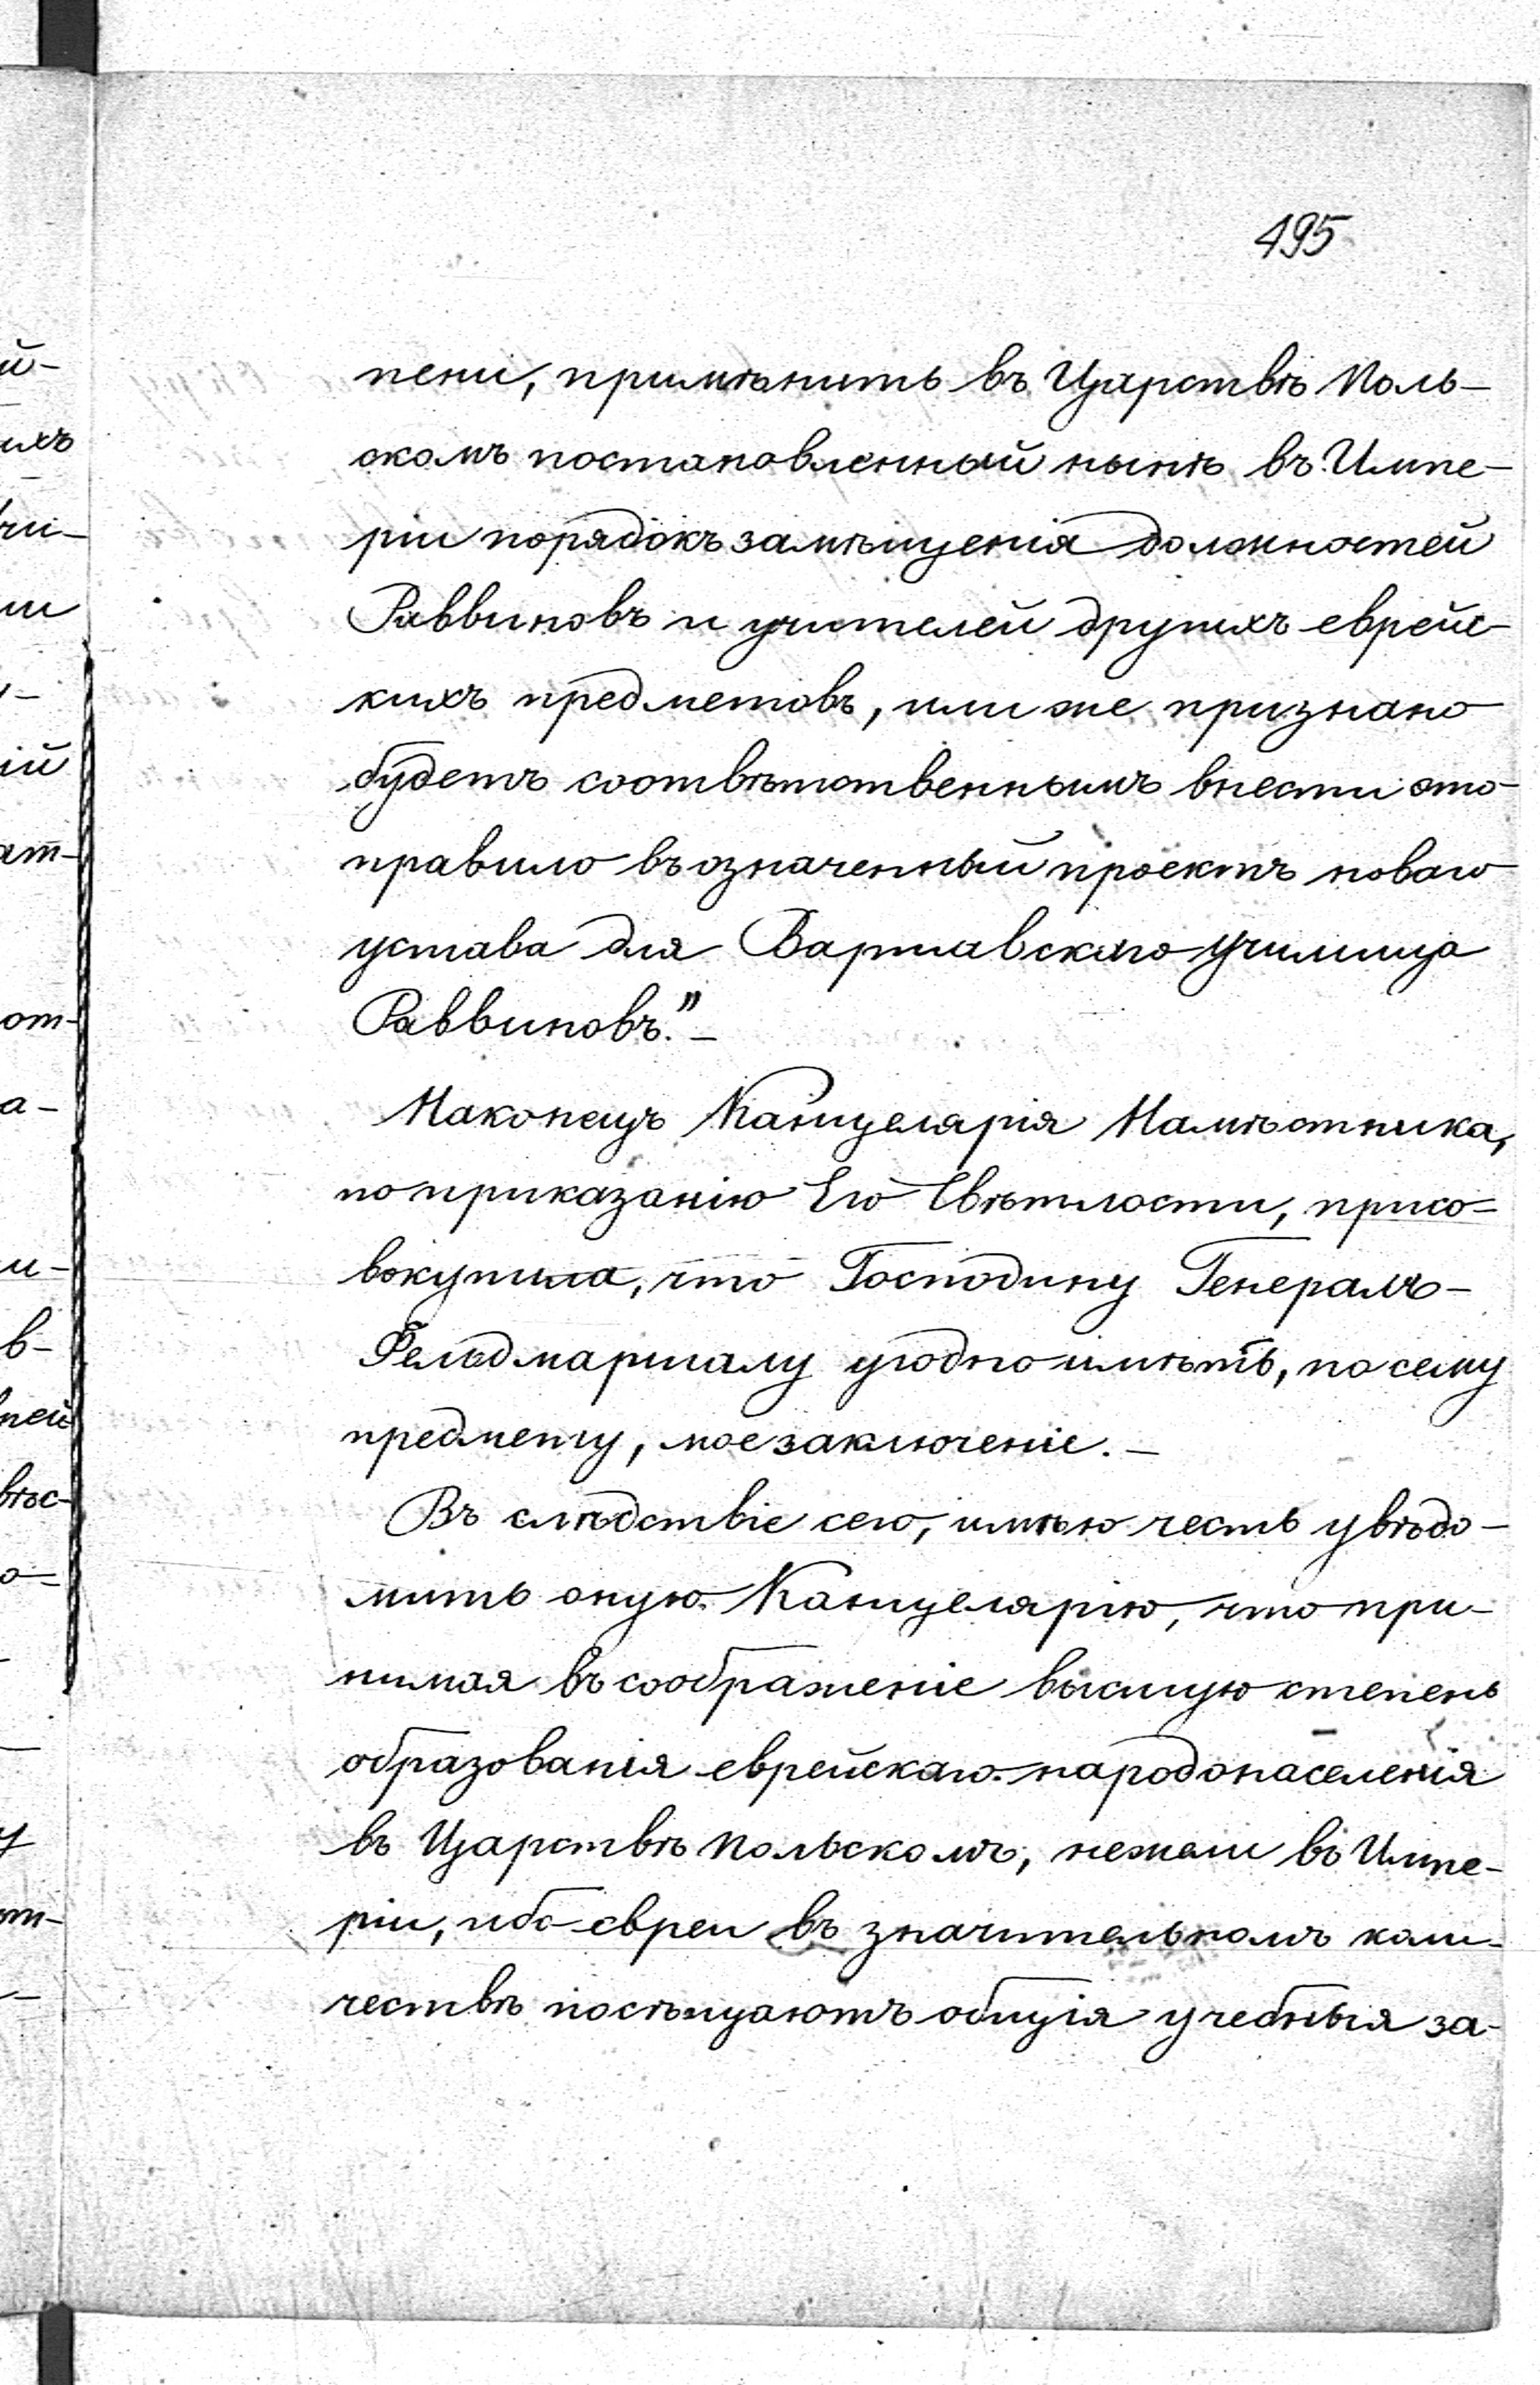 495
пени, примѣнить въ Царствѣ Поль-
скомъ постановленный нынѣ въ Импе-
ріи порядокъ замѣщенія должностей
Раввиновъ и учителей другихъ еврейс-
кихъ предметовъ, или же признано
будетъ соотвѣтственнымъ внести это
правило въ означенный проектъ новаго
устава для Варшавскаго училища
Раввиновъ."-
Наконецъ Канцелярія Намѣстника,
по приказанію Его Свѣтлости, присо=
вокупила, что Господину Генералъ-
Фельдмаршалу угодно имѣть, по сему
предмету, мое заключеніе.-
Въ слѣдствіе сего, имѣю честь увѣдо-
мить оную Канцелярію, что при-
нимая въ соображеніе высшую степень
образованія еврейскаго народонаселенія
въ Царствѣ Польскомъ, нежели въ Импе-
ріи, ибо евреи въ значительномъ коли-
чествѣ посѣщаютъ общія учебныя за-